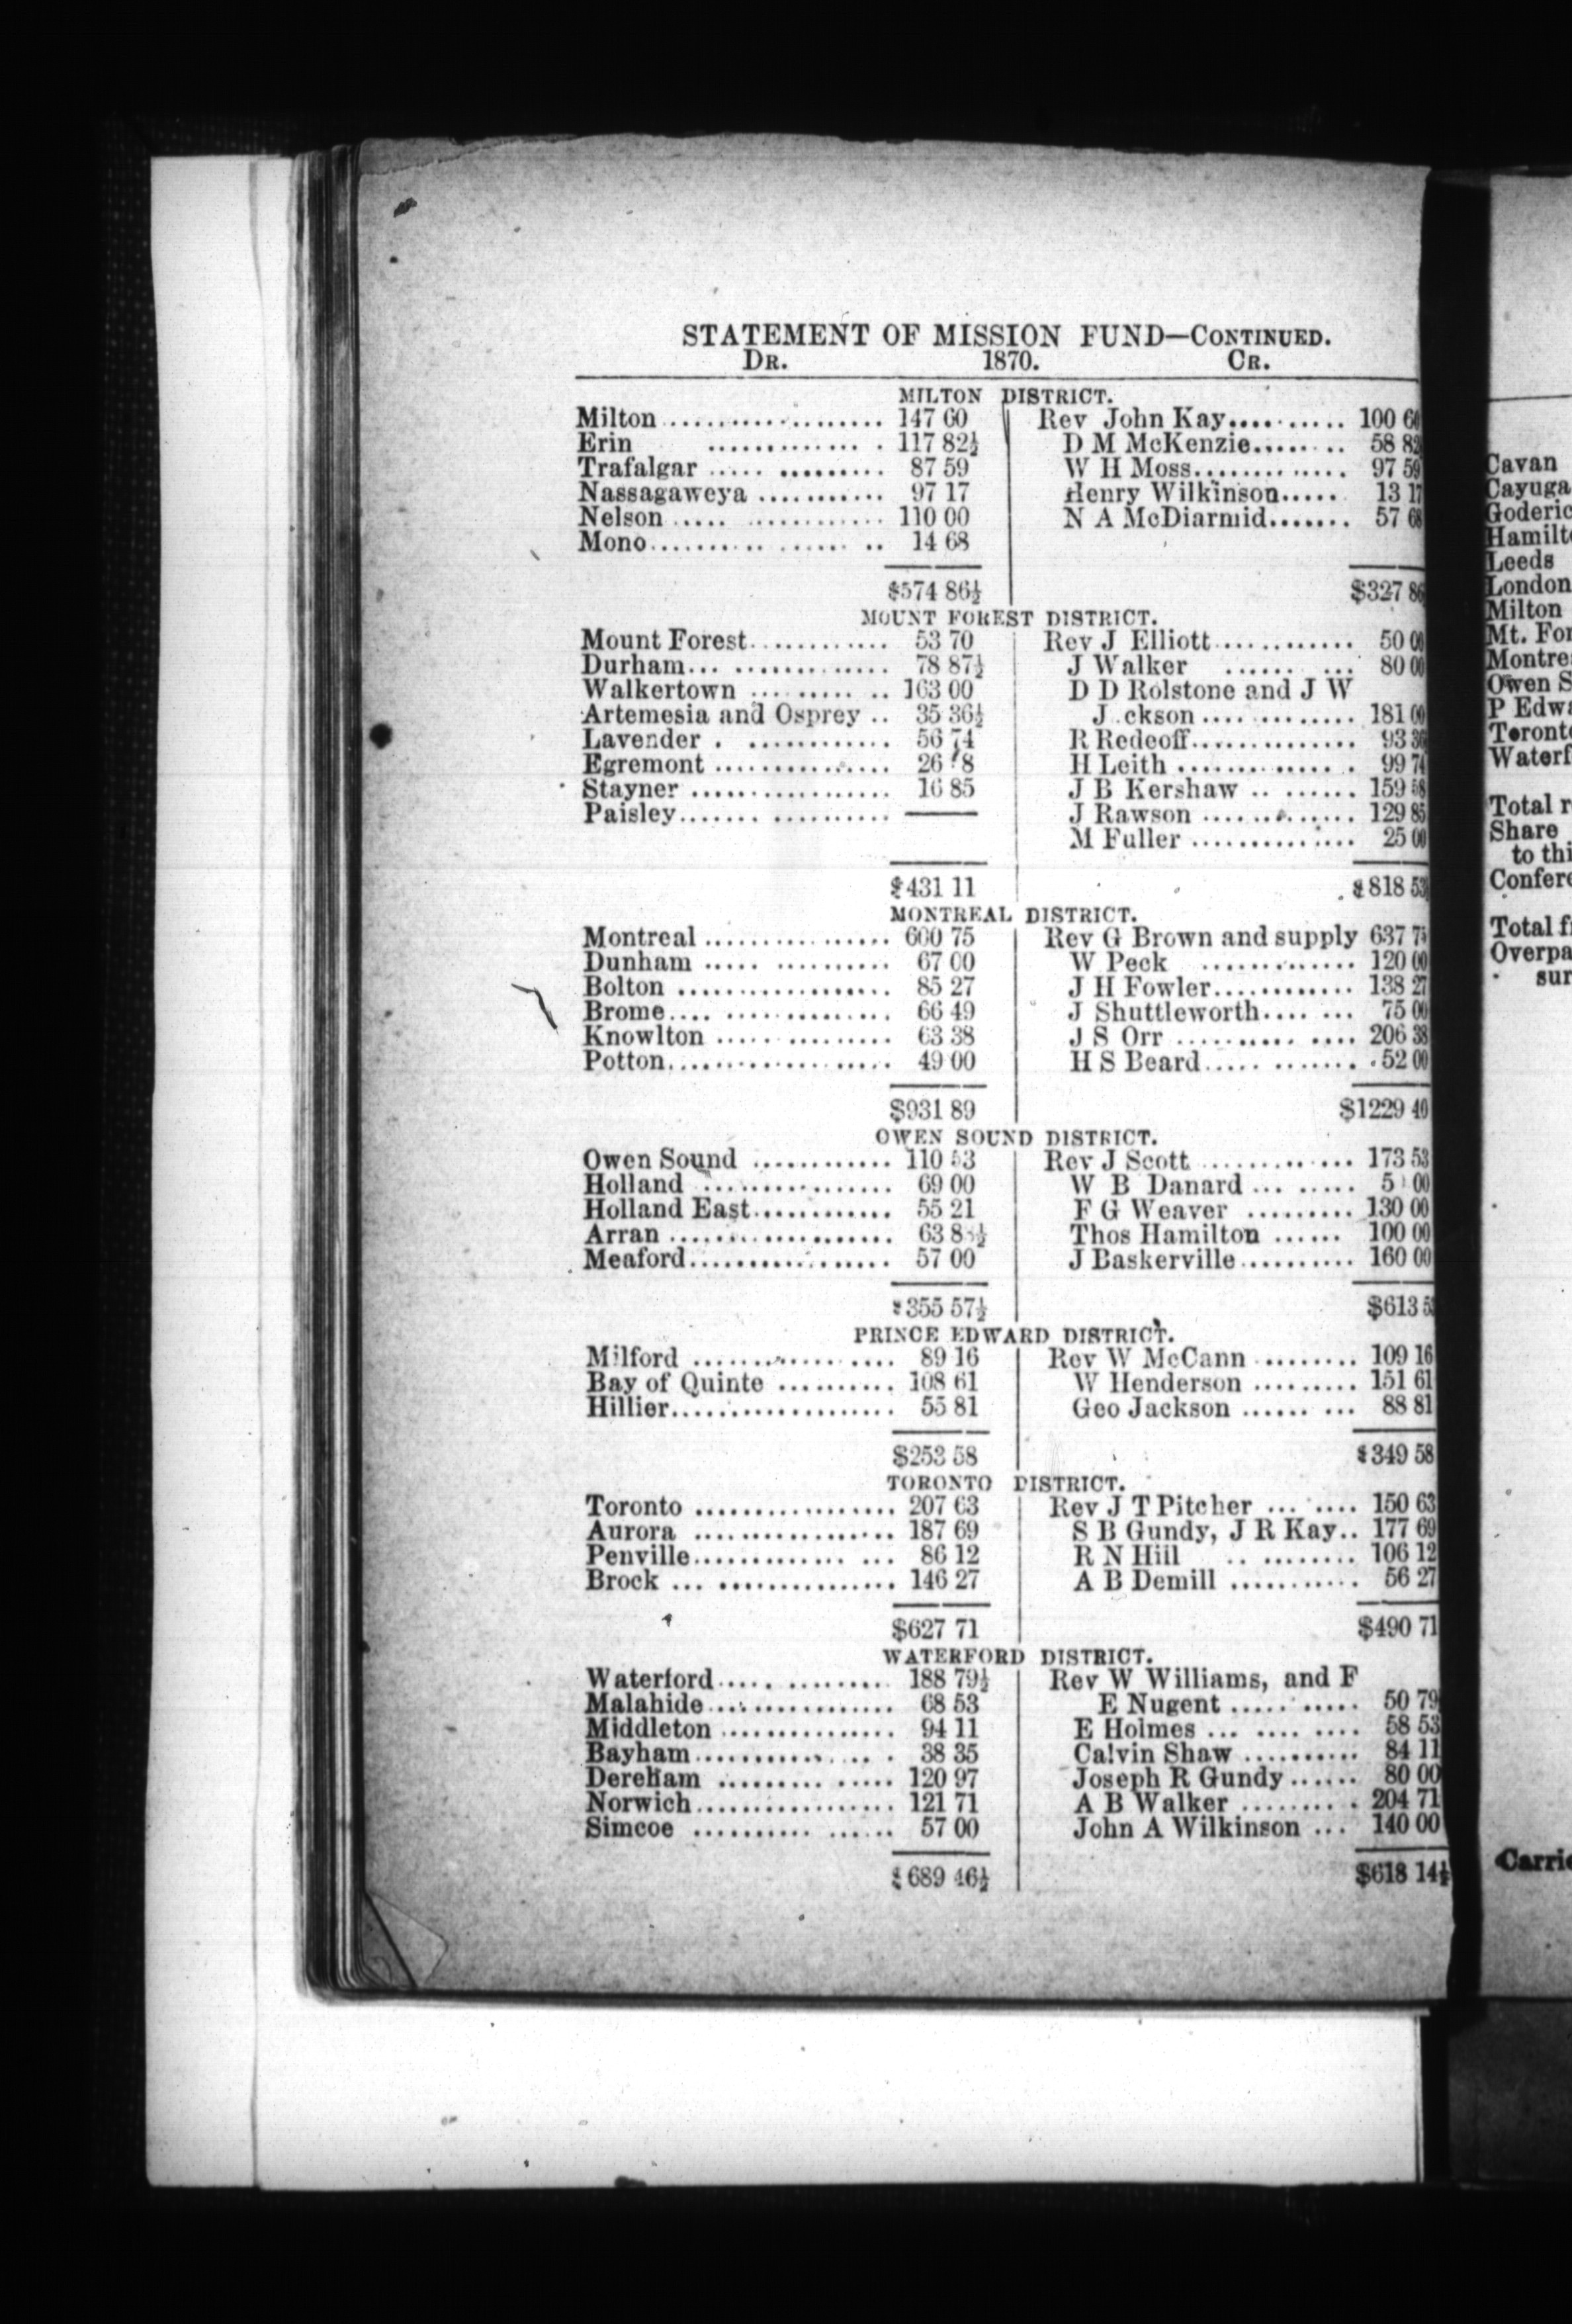 STATEMENT OF MISSION FUND—CONTINUED.
DR. 1870. CR.
MILTON DISTRICT.
Milton .................. 147 60 Rev John Kay.......... 100 60
Erin .............. 117 82½ D M McKenzie........ 58 82
Trafalgar ..... ......... 87 59 W H Moss............. 97 59
Nassagaweya ........... 97 17 Henry Wilkinson..... 13 17
Nelson ..... ............. 110 00 N A McDiarmid....... 57 68
Mono.................. .. 14 68
$574 86½ $327 86
MOUNT FOREST DISTRICT.
Mount Forest............ 53 70 Rev J Elliott............ 50 00
Durham... .............. 78 87½ J Walker ...... ... 80 00
Walkertown ......... .. 163 00 D D Rolstone and J W
Artemesia and Osprey .. 35 36½ J ckson ............. 181 00
Lavender . ............ 56 74 R Redeoff.............. 93 36
Egremont ............... 26 8 H Leith .............. 99 74
Stayner ................. 16 85 J B Kershaw .. ...... 159 58
Paisley....... .......... —— J Rawson ............. 129 85
M Fuller .............. 25 00
$431 11 $818 53
MONTREAL DISTRICT.
Montreal ................ 600 75 Rev G Brown and supply 637 75
Dunham ..... .......... 67 00 W Peck ............. 120 00
Bolton .................. 85 27 J H Fowler............ 138 27
Brome.... .............. 66 49 J Shuttleworth.... ... 75 00
Knowlton ............... 63 38 J S Orr .......... .... 206 38
Potton................... 49 00 H S Beard..... ........ 52 00
$931 89 $1229 40
OWEN SOUND DISTRICT.
Owen Sound ............ 110 53 Rev J Scott ............. 173 53
Holland ................ 69 00 W B Danard ... ..... 5 00
Holland East............ 55 21 F G Weaver ......... 130 00
Arran ................... 63 8 ½ Thos Hamilton ...... 100 00
Meaford................. 57 00 J Baskerville.......... 160 00
$355 57½ $613 53
PRINCE EDWARD DISTRICT.
Milford ................. 89 16 Rev W McCann ......... 109 16
Bay of Quinte .......... 108 61 W Henderson ......... 151 61
Hillier................... 55 81 Geo Jackson ...... ... 88 81
$253 58 $349 58
TORONTO DISTRICT.
Toronto ................. 207 63 Rev J T Pitcher ... .... 150 63
Aurora ................. 187 69 S B Gundy, J R Kay.. 177 69
Penville............. ... 86 12 R N Hill .. ........ 106 12
Brock ... ............... 146 27 A B Demill ........... 56 27
$627 71 $490 71
WATERFORD DISTRICT.
Waterford..... ......... 188 79½ Rev W Williams, and F
Malahide................ 68 53 E Nugent ........... 50 79
Middleton ............... 94 11 E Holmes ... .... .... 58 53
Bayham.............. . 38 35 Calvin Shaw .......... 84 11
Dereham ......... ..... 120 97 Joseph R Gundy ...... 80 00
Norwich................. 121 71 A B Walker .......... 204 71
Simcoe .......... ...... 57 00 John A Wilkinson ... 140 00
$689 46½ $618 14½
Cavan
Cayuga
Goderic
Hamilt
Leeds
London
Milton
Mt. For
Montre
Owen S
P Edwa
Toront
Waterf
Total r
Share
to thi
Confere
Total f
Overpa
sur
Carrie